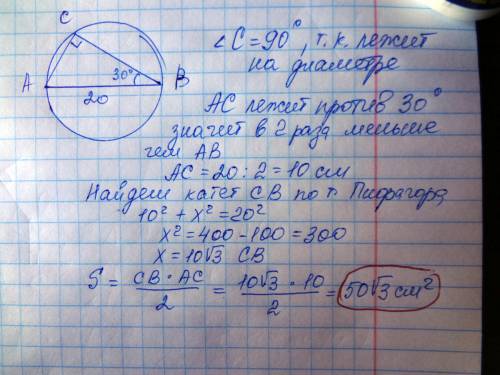 C
A
B
30°
20
∠C=90°, т.к. лежит
на диаметре
AC лежит против 30°
значит в 2 раза меньше
чем AB
AC = 20 : 2 = 10 см
Найдем катет CB по т. Пифагора
10² + x² = 20²
x² = 400 - 100 = 300
x = 10√3 CB
S = CB · AC / 2 = 10√3 · 10 / 2 = 50√3 см²